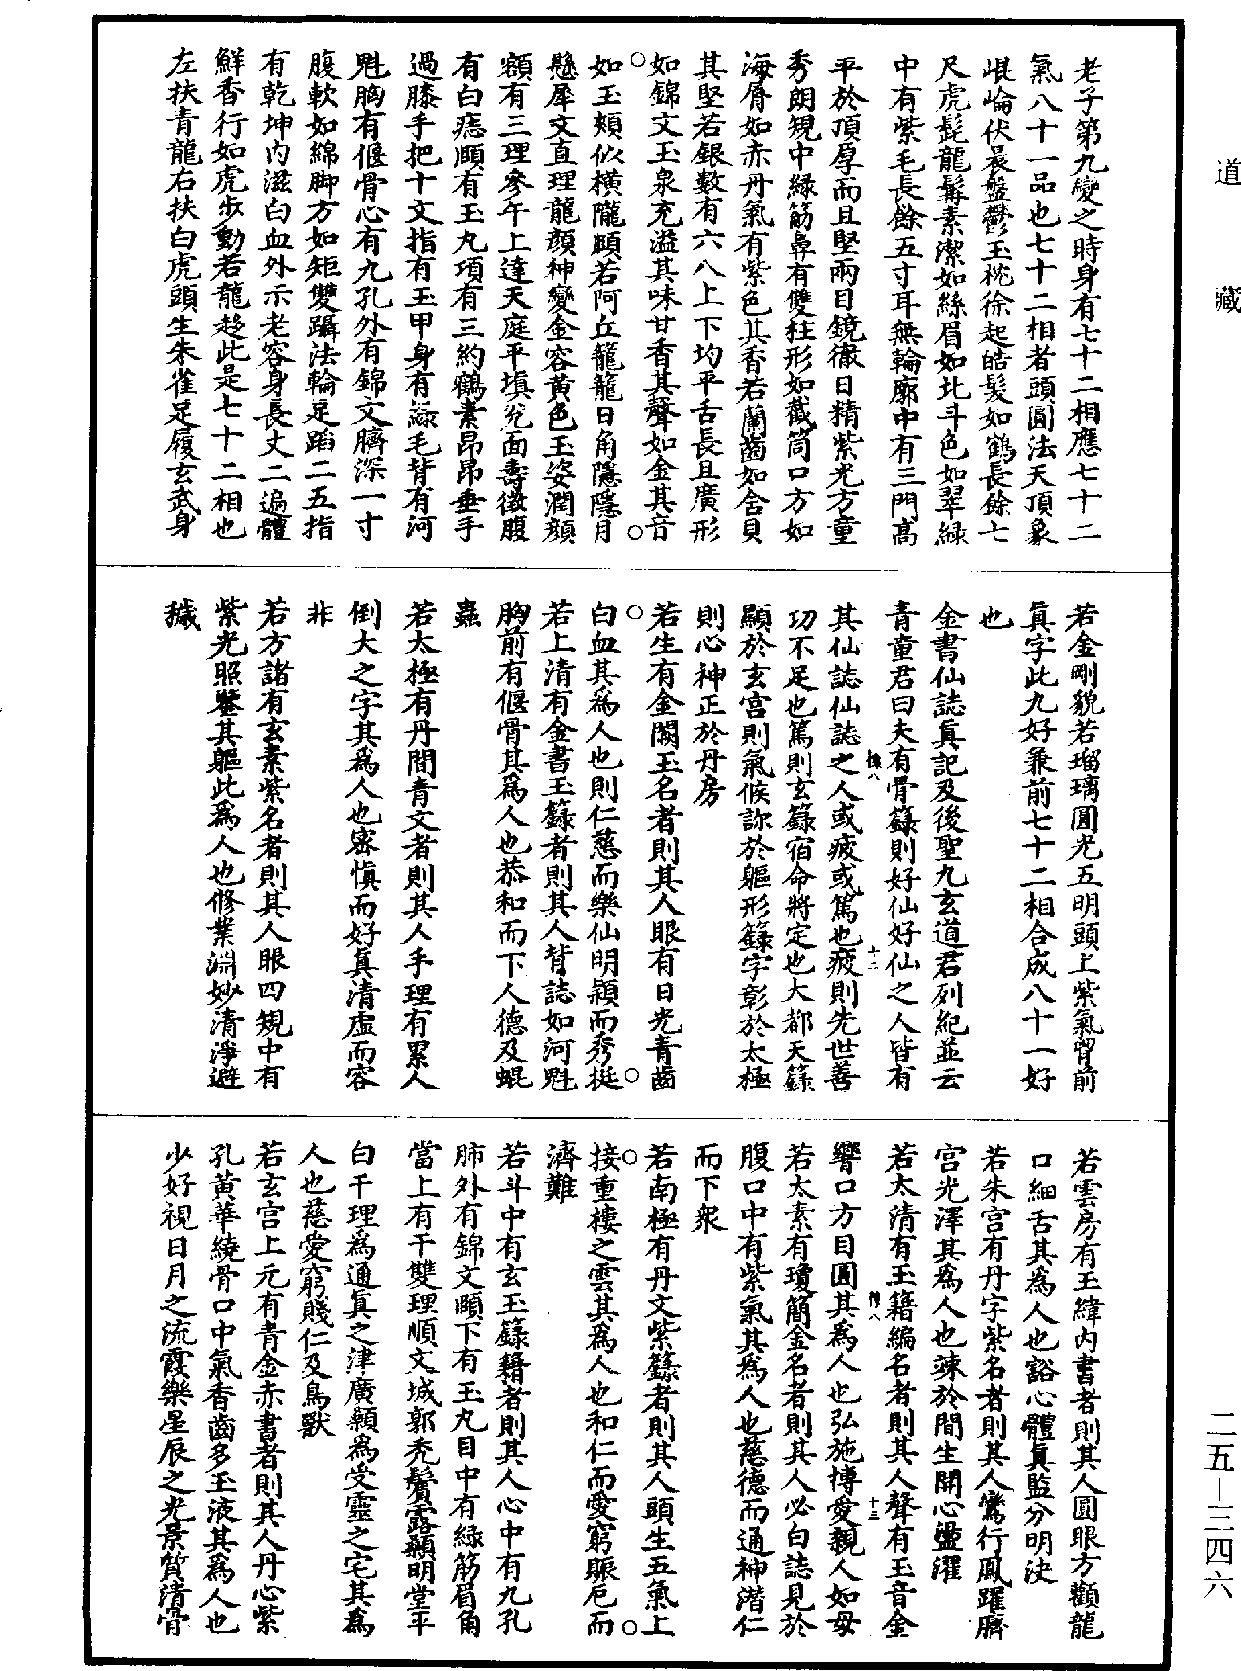 道藏
老子第九變之時身有七十二相應七十二
氣八十一品也七十二相者頭圓法天頂象
崐崘伏晨盤鬱玉枕徐起皓髮如鶴長餘七
尺虎髭龍髯素潔如絲眉如北斗色如翠綠
中有紫毛長餘五寸耳無輪廓中有三門高
平於頂厚而且堅兩目鏡徹日精紫光方童
秀朗規中綠筋鼻有雙柱形如截筒口方如
海脣如赤丹氣有紫色其香若蘭齒如含貝
其堅若銀數有六八上下均平舌長且廣形
如錦文玉泉充溢其味甘香其聲如金其音
如玉頰似橫隴頤若阿丘籠籠日角隱隱月
懸犀文直理龍顔神變金容黄色玉姿潤顔
額有三理參午上達天庭平塡兊面壽徵腹
有白痣頤有玉丸項有三約鶴素昂昂垂手
過膝手把十文指有玉甲身有綠毛背有河
魁胸有偃骨心有九孔外有錦文臍深一寸
腹軟如綿脚方如矩雙躡法輪足蹈二五指
有乾坤内滋白血外示老容身長丈二遍體
鮮香行如虎步動若龍趍此是七十二相也
左扶青龍右扶白虎頭生朱雀足履玄武身
若金剛貌若瑠璃圓光五明頭上紫氣胷前
眞字此九好兼前七十二相合成八十一好
也
金書仙誌眞記及後聖九玄道君列紀並云
青童君曰夫有骨籙則好仙好仙之人皆有
其仙誌仙誌之人或疲或篤也疲則先世善
功不足也篤則玄籙宿命將定也大都天籙
顯於玄宫則氣候訴於軀形籙字彰於太極
則心神正於丹房
若生有金闕玉名者則其人眼有日光青齒
白血其爲人也則仁慈而樂仙明穎而秀挺
若上清有金書玉籙者則其人背誌如河魁
胸前有偃骨其爲人也恭和而下人德及蜫
蟲
若太極有丹簡青文者則其人手理有累人
倒大之字其爲人也密愼而好眞清虛而容
非
若方諸有玄素紫名者則其人眼四規中有
紫光照鑒其軀此爲人也修業淵妙清淨避
穢
若雲房有玉緯内書者則其人圓眼方顴龍
口細舌其爲人也豁心體眞監分明決
若朱宫有丹字紫名者則其人鸞行鳳躍臍
宫光澤其爲人也竦於間生開心盪濯
若太清有玉籍編名者則其人聲有玉音金
響口方目圓其爲人也弘施博愛親人如母
若太素有瓊簡金名者則其人必白誌見於
腹口中有紫氣其爲人也慈德而通神潛仁
而下衆
若南極有丹文紫籙者則其人頭生五氣上
接重樓之雲其爲人也和仁而愛窮賑卮而
濟難
若斗中有玄玉籙籍者則其人心中有九孔
肺外有錦文頤下有玉丸目中有綠筋眉角
當上有千雙理順文城郭禿鬢露顙明堂平
白千理爲通眞之津廣顙爲受靈之宅其爲
人也慈愛窮賤仁及鳥獸
若玄宫上元有青金赤書者則其人丹心紫
孔黄華繞骨口中氣香齒多玉液其爲人也
少好視日月之流霞樂星辰之光景質清骨
二五—三四六